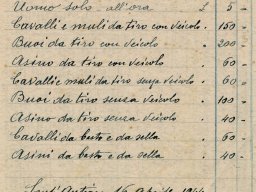 Uomo solo all'ora £ 5 -
Cavalli e muli da tiro con veicolo . 150 -
Buoi da tiro con veicolo . 200 -
Asino da tiro con veicolo . 60 -
Cavalli e muli da tiro senza veicolo . 60 -
Buoi da tiro senza veicolo . 100 -
Asino da tiro senza veicolo . 40 -
Cavalli da basto e da sella . 60 -
Asini da basto e da sella . 40 -